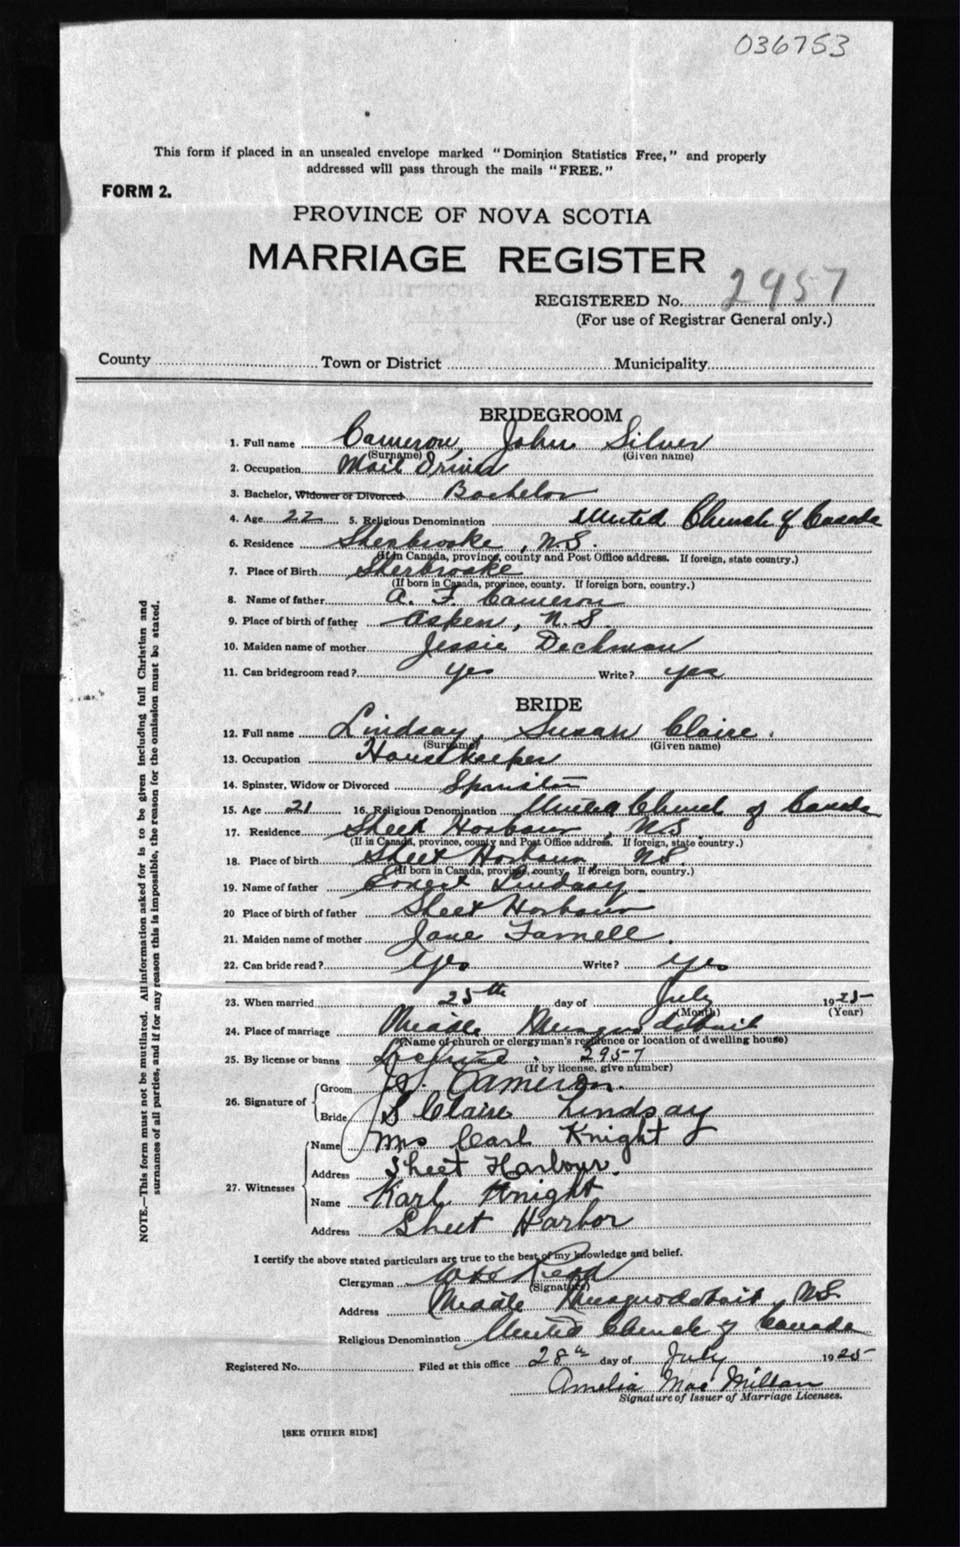 036753
This form if placed in an unsealed envelope marked "Dominion Statistics Free," and properly
addressed will pass through the mails "FREE."
FORM 2.
PROVINCE OF NOVA SCOTIA
MARRIAGE REGISTER
REGISTERED No. 2957
(For use of Registrar General only.)
County Town or District Municipality
BRIDEGROOM
1. Full name Cameron, John Silver
(Surname) (Given name)
2. Occupation Mail Driver
3. Bachelor, Widower or Divorced Bachelor
4. Age 22 5. Religious Denomination United Church of Canada
6. Residence Sherbrooke, N.S.
(If in Canada, province, county and Post Office address. If foreign, state country.)
7. Place of Birth Sherbrooke
(If born in Canada, province, county. If foreign born, country.)
8. Name of father A. F. Cameron
9. Place of birth of father Aspen, N.S.
10. Maiden name of mother Jessie Deckman
11. Can bridegroom read? yes Write? yes
BRIDE
12. Full name Lindsay, Susan Claire.
(Surname) (Given name)
13. Occupation Housekeeper
14. Spinster, Widow or Divorced Spinster
15. Age 21 16. Religious Denomination United Church of Canada
17. Residence Sheet Harbour, N.S.
(If in Canada, province, county and Post Office address. If foreign, state country.)
18. Place of birth Sheet Harbour, N.S.
(If born in Canada, province, county. If foreign born, country.)
19. Name of father Ernest Lindsay.
20 Place of birth of father Sheet Harbour
21. Maiden name of mother Jane Farnell.
22. Can bride read? Yes Write? yes
23. When married 25th day of July 1925
(Month) (Year)
24. Place of marriage Middle Musquodoboit
(Name of church or clergyman's residence or location of dwelling house)
25. By license or banns License. 2957
(If by license, give number)
26. Signature of
Groom J.S. Cameron.
Bride S Claire Lindsay
27. Witnesses
Name Mrs Carl Knight
Address Sheet Harbour.
Name Karl Knight
Address Sheet Harbor
I certify the above stated particulars are true to the best of my knowledge and belief.
Clergyman Read
(Signature)
Address Middle Musquodoboit, N.S.
Religious Denomination United Church of Canada
Registered No. Filed at this office 28th day of July 1925
Amelia MacMillan
Signature of Issuer of Marriage Licenses.
[SEE OTHER SIDE]
NOTE.—This form must not be mutilated. All information asked for is to be given including full Christian and
surnames of all parties, and if for any reason this is impossible, the reason for the omission must be stated.